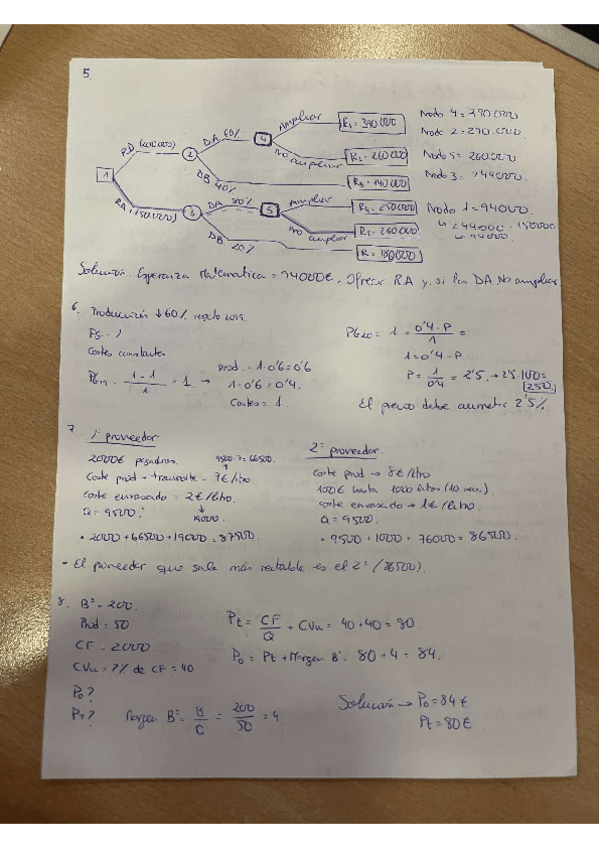 5.
1
RD (200.000)
2
DA 60%
4
Ampliar
R1 = 390 000
No ampliar
R2 = 260 000
DB 40%
R3 = 140 000
RA (150.000)
3
DA 80%
5
Ampliar
R4 = 250 000
No ampliar
R5 = 260 000
DB 20%
Nodo 4 = 390 000
Nodo 2 = 290.000.
Nodo 5 = 260 000
Nodo 3 = 244 000.
Nodo 1 = 94000.
↳ 244 000 - 150 000
↳ 94000.
Solución. Esperanza Matemática = 94000€. Ofrecer RA y, si la DA, No ampliar
6. Producción ↓ 60% 2019.
PG = 1
Costes constantes
PG19 = 1 · 1 / 1 = 1. →
prod. = 1 · 0'6 = 0'6
1 - 0'6 = 0'4.
Costes = 1.
PG20 = 1 = 0'4 · P / 1 =
1 = 0'4 · P.
P = 1 / 0'4 = 2'5. → 2'5 · 100 =
250
El precio debe aumentar 2'5%.
7.
1º proveedor
2000€
9500 · 7 = 66500.
Coste prod + transporte = 7€/litro
coste envasado = 2€/litro.
Q = 9500.
19000.
• 2000 + 66500 + 19000 = 87500.
2º proveedor.
Coste prod → 8€/litro
100€ hasta 1000 litros (10 veces)
coste envasado → 1€/litro.
Q = 9500.
• 9500 + 1000 + 76000 = 86500.
- El proveedor que sale más rentable es el 2º (86500).
8. Bº = 200.
Prod = 50
CF = 2000.
CVu = ?% de CF = 40
Po?
Pt?
Margen Bº = B / C = 200 / 50 = 4
Pt = CF / Q + CVu = 40 + 40 = 80.
Po = Pt + Margen Bº = 80 + 4 = 84.
Solución → Po = 84€
Pt = 80€